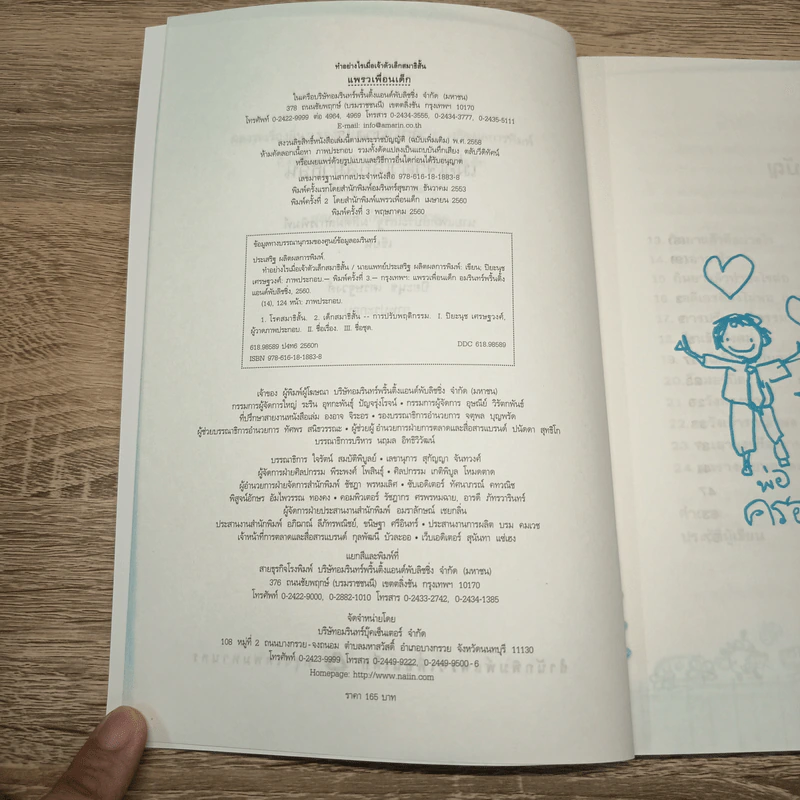 ทำอย่างไรเมื่อเจ้าตัวเล็กสมาธิสั้น
แพรวเพื่อนเด็ก
ในเครือบริษัทอมรินทร์พริ้นติ้งแอนด์พับลิชชิ่ง จำกัด (มหาชน)
378 ถนนชัยพฤกษ์ (บรมราชชนนี) เขตตลิ่งชัน กรุงเทพฯ 10170
โทรศัพท์ 0-2422-9999 ต่อ 4964, 4969 โทรสาร 0-2434-3555, 0-2434-3777, 0-2435-5111
E-mail: info@amarin.co.th
สงวนลิขสิทธิ์หนังสือเล่มนี้ตามพระราชบัญญัติ (ฉบับเพิ่มเติม) พ.ศ. 2558
ห้ามคัดลอกเนื้อหา ภาพประกอบ รวมทั้งดัดแปลงเป็นแถบบันทึกเสียง ตลับวีดิทัศน์
หรือเผยแพร่ด้วยรูปแบบและวิธีการอื่นใดก่อนได้รับอนุญาต
เลขมาตรฐานสากลประจำหนังสือ 978-616-18-1883-8
พิมพ์ครั้งแรกโดยสำนักพิมพ์อมรินทร์สุขภาพ ธันวาคม 2553
พิมพ์ครั้งที่ 2 โดยสำนักพิมพ์แพรวเพื่อนเด็ก เมษายน 2560
พิมพ์ครั้งที่ 3 พฤษภาคม 2560
ข้อมูลทางบรรณานุกรมของศูนย์ข้อมูลอมรินทร์
ประเสริฐ ผลิตผลการพิมพ์.
ทำอย่างไรเมื่อเจ้าตัวเล็กสมาธิสั้น / นายแพทย์ประเสริฐ ผลิตผลการพิมพ์: เขียน; ปิยะนุช
เศรษฐวงศ์: ภาพประกอบ.-- พิมพ์ครั้งที่ 3.-- กรุงเทพฯ: แพรวเพื่อนเด็ก อมรินทร์พริ้นติ้ง
แอนด์พับลิชชิ่ง, 2560.
(14), 124 หน้า: ภาพประกอบ.
1. โรคสมาธิสั้น. 2. เด็กสมาธิสั้น -- การปรับพฤติกรรม. I. ปิยะนุช เศรษฐวงศ์,
ผู้วาดภาพประกอบ. II. ชื่อเรื่อง. III. ชื่อชุด.
618.98589 ป4ท6 2560ก DDC 618.98589
ISBN 978-616-18-1883-8
เจ้าของ ผู้พิมพ์ผู้โฆษณา บริษัทอมรินทร์พริ้นติ้งแอนด์พับลิชชิ่ง จำกัด (มหาชน)
กรรมการผู้จัดการใหญ่ ระริน อุทกะพันธุ์ ปัญจรุ่งโรจน์ • กรรมการผู้จัดการ อุษณีย์ วิรัตกพันธ์
ที่ปรึกษาสายงานหนังสือเล่ม องอาจ จิระอร • รองบรรณาธิการอำนวยการ จตุพล บุญพรัด
ผู้ช่วยบรรณาธิการอำนวยการ ทัศพร สนิธวรรณะ • ผู้ช่วยผู้อำนวยการฝ่ายการตลาดและสื่อสารแบรนด์ ปนัดดา สุทธิโก
บรรณาธิการบริหาร นฤมล อิทธิวิวัฒน์
บรรณาธิการ ใจรัตน์ สมบัติพิบูลย์ • เลขานุการ สุกัญญา จันทวงศ์
ผู้จัดการฝ่ายศิลปกรรม พีระพงศ์ โพสินธุ์ • ศิลปกรรม เกติพิบูล โหมดตาด
ผู้อำนวยการฝ่ายจัดการสำนักพิมพ์ ชัชฎา พรหมเลิศ • ซับเอดิเตอร์ ทัศนาภรณ์ คทวณิช
พิสูจน์อักษร อัมไพวรรณ ทองคง • คอมพิวเตอร์ รัชฎากร ศรพรหมฉาย, อารดี ภัทรวารินทร์
ผู้จัดการฝ่ายประสานงานสำนักพิมพ์ อมราลักษณ์ เชยกลิ่น
ประสานงานสำนักพิมพ์ อภิฌาณ์ ลีภัทรพณิชย์, ชนิษฐา ศรีอินทร์ • ประสานงานการผลิต บรม คมเวช
เจ้าหน้าที่การตลาดและสื่อสารแบรนด์ กุลพัฒนี บัวละออ • เว็บเอดิเตอร์ สุนันทา แซ่เฮง
แยกสีและพิมพ์ที่
สายธุรกิจโรงพิมพ์ บริษัทอมรินทร์พริ้นติ้งแอนด์พับลิชชิ่ง จำกัด (มหาชน)
376 ถนนชัยพฤกษ์ (บรมราชชนนี) เขตตลิ่งชัน กรุงเทพฯ 10170
โทรศัพท์ 0-2422-9000, 0-2882-1010 โทรสาร 0-2433-2742, 0-2434-1385
จัดจำหน่ายโดย
บริษัทอมรินทร์บุ๊คเซ็นเตอร์ จำกัด
108 หมู่ที่ 2 ถนนบางกรวย-จงถนอม ตำบลมหาสวัสดิ์ อำเภอบางกรวย จังหวัดนนทบุรี 11130
โทรศัพท์ 0-2423-9999 โทรสาร 0-2449-9222, 0-2449-9500-6
Homepage: http://www.naiin.com
ราคา 165 บาท
พ่อ